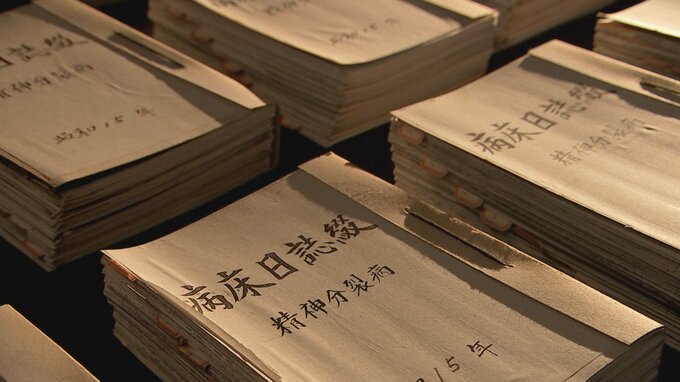 日誌綴
精神分裂病
昭和15年
昭和15年
病床日誌綴
精神分裂病
病床日誌綴
精神分裂病
和15年